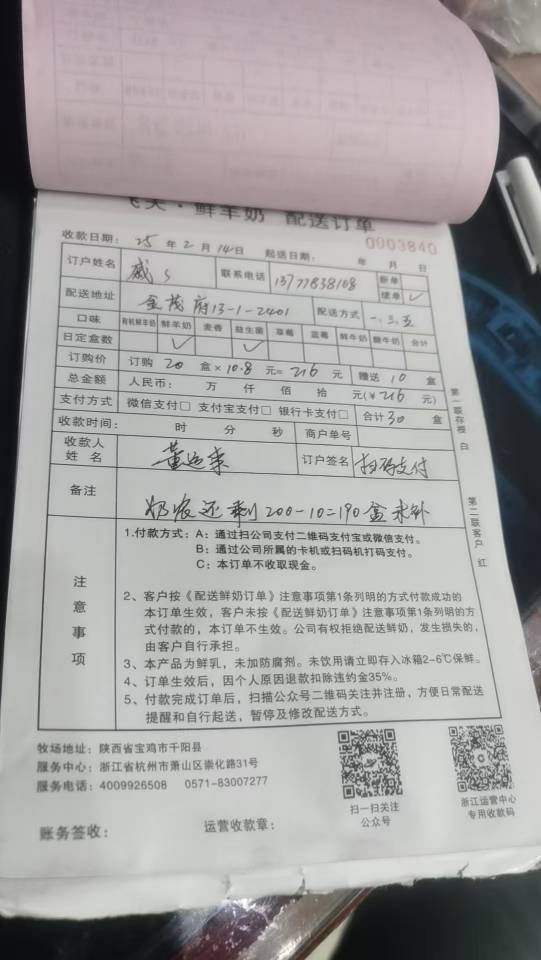 飞天·鲜羊奶 配送订单
收款日期: 25 年 2 月 14 日 起送日期: 年 月 日 0003840
订户姓名 联系电话 13777838108 新单
续单 ✓
配送地址 金茂府13-1-2401 配送方式 一.三.五
口味 有机鲜羊奶 鲜羊奶 麦香 益生菌 草莓 蓝莓 鲜牛奶 酸牛奶 合计
日定盒数 ✓ ✓
订购价 订购 20 盒 × 10.8 元= 216 元 赠送 10 盒
总金额 人民币: 万 仟 佰 拾 元(¥ 216 元)
支付方式 微信支付□ 支付宝支付□ 银行卡支付□ 合计 30 盒
收款时间: 时 分 秒 商户单号
收款人姓名 黄运来 订户签名 扫码支付
备注 奶农还剩200-10=190盒未补
第一联存根 白
第二联客户 红
注意事项
1.付款方式: A: 通过扫公司支付二维码支付宝或微信支付。
B: 通过公司所属的卡机或扫码机打码支付。
C: 本订单不收取现金。
2、客户按《配送鲜奶订单》注意事项第1条列明的方式付款成功的
本订单生效, 客户未按《配送鲜奶订单》注意事项第1条列明的方
式付款的, 本订单不生效。公司有权拒绝配送鲜奶, 发生损失的,
由客户自行承担。
3、本产品为鲜乳, 未加防腐剂。未饮用请立即存入冰箱2-6℃保鲜。
4、订单生效后, 因个人原因退款扣除违约金35%。
5、付款完成订单后, 扫描公众号二维码关注并注册, 方便日常配送
提醒和自行起送, 暂停及修改配送方式。
牧场地址: 陕西省宝鸡市千阳县
服务中心: 浙江省杭州市萧山区崇化路31号
服务电话: 4009926508 0571-83007277
扫一扫关注
公众号
浙江运营中心
专用收款码
账务签收: 运营收款章: